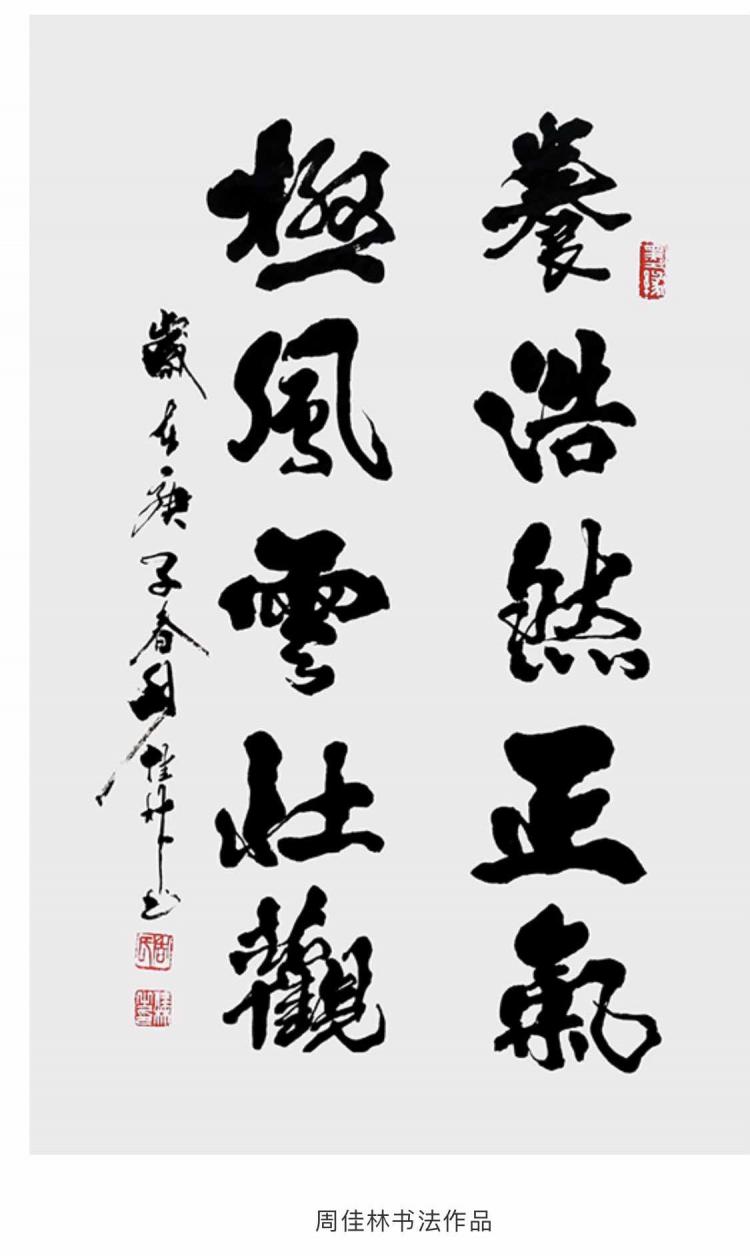 養浩然正氣
極風雲壯觀
歲在庚子春周佳林书
周佳林书法作品